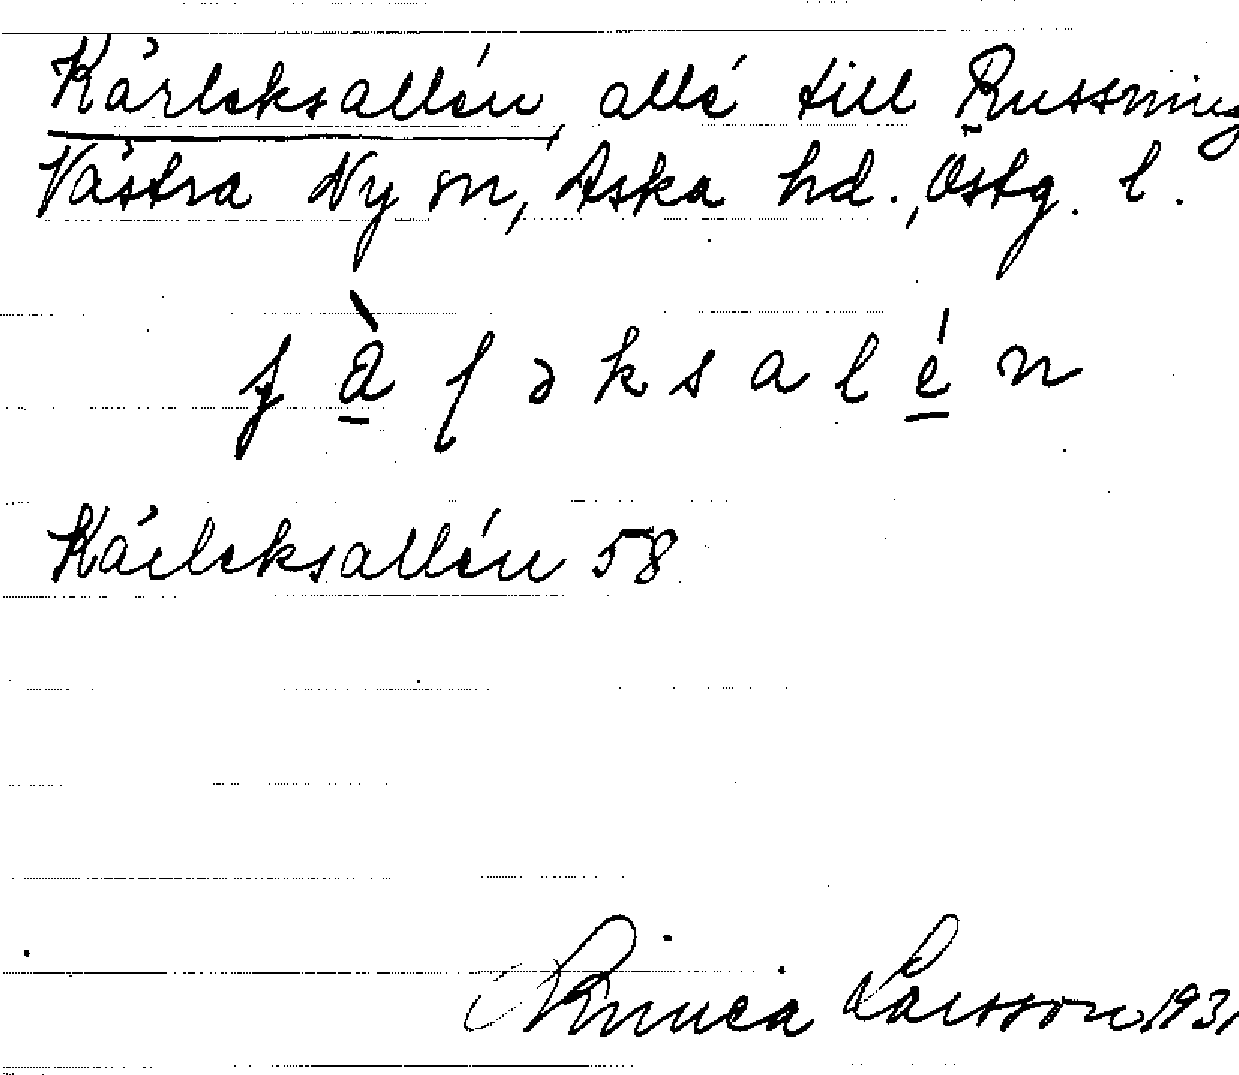 Kärleksallén, allé till Russning
Västra Ny sn, Aska hd., Östg. l.
Kärleksallén 58
Larsson 193